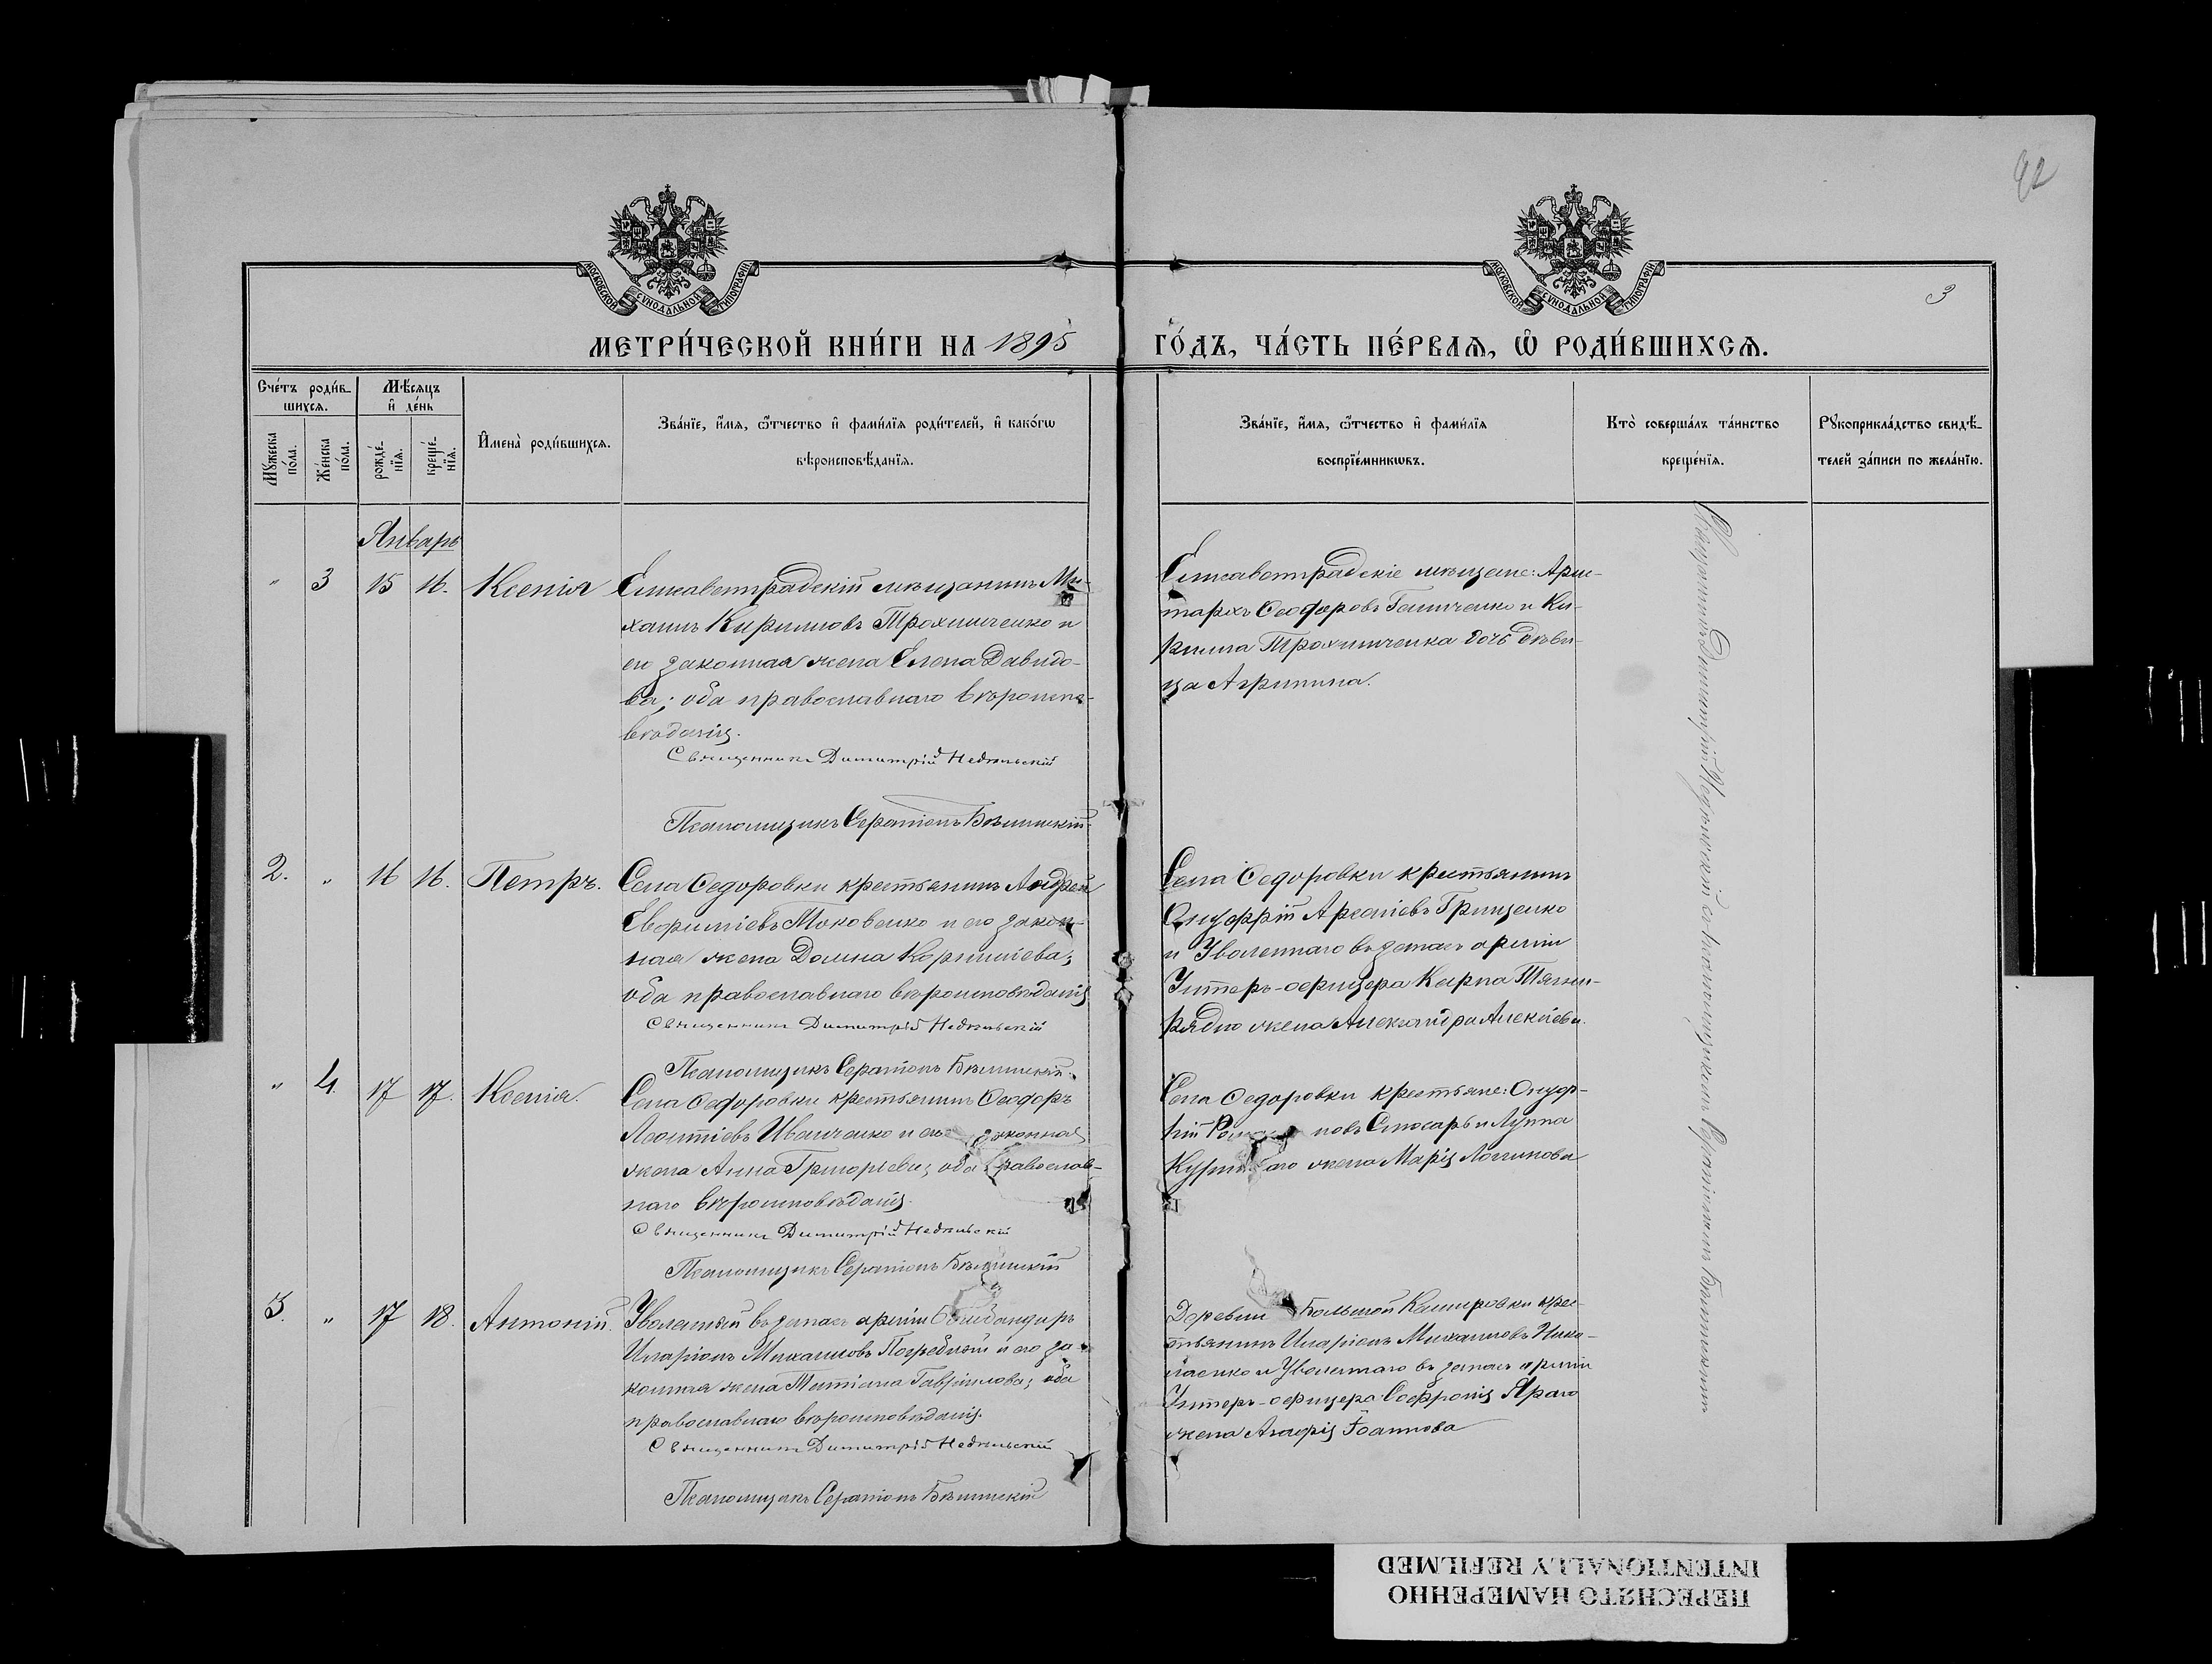 92
3
МОСКОВСКОЙ СУНОДАЛЬНОЙ ТИПОГРАФІИ
МОСКОВСКОЙ СУНОДАЛЬНОЙ ТИПОГРАФІИ
МЕТРИ́ЧЕСКОЙ КНИ́ГИ НА 1895 ГО́ДЪ, ЧА́СТЬ ПЕ́РВАЯ, Ѡ РОДИ́ВШИХСЯ.
Сче́тъ роди́в-
шихся.
Му́жеска по́ла.
Же́нска по́ла.
Мѣ́сяцъ
и҆ де́нь
рожде́-
нїя.
креще́-
нїя.
И҆мена̀ роди́вшихся.
Зва́нїе, и҆́мя, ѻ҆́тчество и҆ фами́лїя роди́телей, и҆ како́гѡ
вѣроисповѣ́данїя.
Зва́нїе, и҆́мя, ѻ҆́тчество и҆ фами́лїя
воспрїе́мникѡвъ.
Кто̀ соверша́лъ та́инство
креще́нїя.
Рꙋкоприкла́дство свидѣ́-
телей за́писи по жела́нїю.
Январь
" 3 15 16. Ксенія
Елисаветградскій мѣщанинъ Ми-
хаилъ Кириловъ Трохимченко и
его законная жена Елена Давидо-
ва; оба православнаго вѣроиспо-
вѣданія.
Священникъ Димитрій Недѣльскій
Псаломщикъ Серапіонъ Бѣлинскій.
Елисаветградскіе мѣщане: Арис-
тархъ Ѳеодоровъ и Ки-
рилла Трохимченка дочь дѣви-
ца Агрипина.
2. " 16 16. Петръ.
Села Ѳедоровки крестьянинъ Андрей
Евфиміевъ Моковенко и его закон-
ная жена Домна Корнилiева;
оба православнаго вѣроисповѣданія
Священникъ Димитрій Недѣльскій
Псаломщикъ Серапіонъ Бѣлинскій.
Села Ѳедоровки крестьянинъ
Онуфрій Арсеніевъ Грищенко
и Уволеннаго въ запасъ арміи
Унтеръ-офицера Карпа Тягни-
рядно жена Александра Алексіева.
" 4. 17 17. Ксенія.
Села Ѳедоровки крестьянинъ Ѳеодоръ
Леонтіевъ Иванченко и его законная
жена Анна Григоріева; оба православ-
наго вѣроисповѣданія.
Священникъ Димитрій Недѣльскій
Псаломщикъ Серапіонъ Бѣлинскій
Села Ѳедоровки крестьяне: Онуф-
рій новъ Слюсарь и Лукка
жена Марія Логгинова
3. " 17 18. Антоній.
Уволенный въ запасъ арміи Бомбандиръ
Иларіонъ Михаиловъ Погребной и его за-
конная жена Татіана Гавріилова; оба
православнаго вѣроисповѣданія.
Священникъ Димитрій Недѣльскій
Псаломщикъ Серапіонъ Бѣлинскій
Деревни Большой крес-
тьянинъ Иларіонъ Михаиловъ Нико-
лаенко и Уволеннаго въ запасъ арміи
Унтеръ-офицера Софронія Яраго
жена Іоаннова
Священникъ Димитрій Недѣльскій съ псаломщикомъ Серапіономъ Бѣлинскимъ
ПЕРЕСНЯТО НАМЕРЕННО
INTENTIONALLY REFILMED